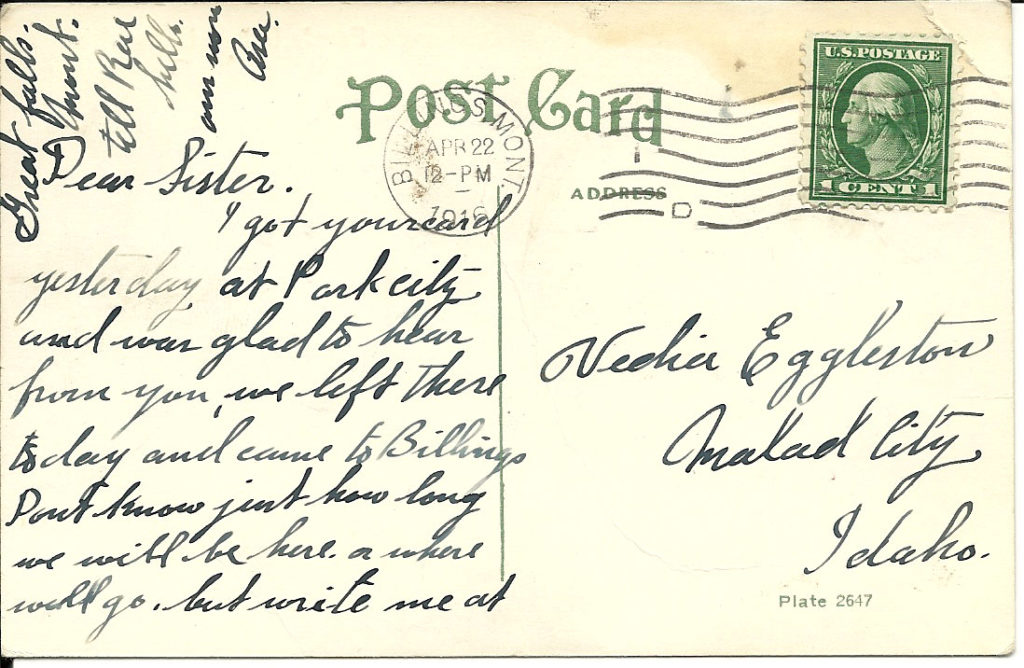 Great falls.
Mont.
tell
hello.
ans soon
Post Card
BILLINGS MONT.
APR 22
12-PM
1916
U.S. POSTAGE
1 CENT 1
ADDRESS
D
Dear Sister.
I got your card
yesterday at Park city
and was glad to hear
from you, we left there
to day and came to Billings
Dont know just how long
we will be here. or where
will go. but write me at
Eggleston
Malad City
Idaho.
Plate 2647